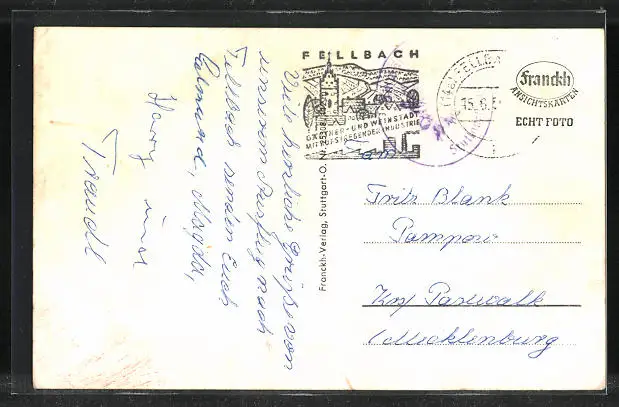 Viele herzliche Grüße von
unserem Ausflug nach
Fellbach senden Euch
Edmund, Magda,
Harry und
Traudl
Franckh-Verlag, Stuttgart-O.
FELLBACH
GÄRTNER- UND WEINSTADT
MIT AUFSTREBENDER INDUSTRIE
FELLBA
15.6.5
Franckh
ANSICHTSKARTEN
ECHT FOTO
Fam.
Fritz Blank
Pampow
Krs/ Pasewalk
/Mecklenburg